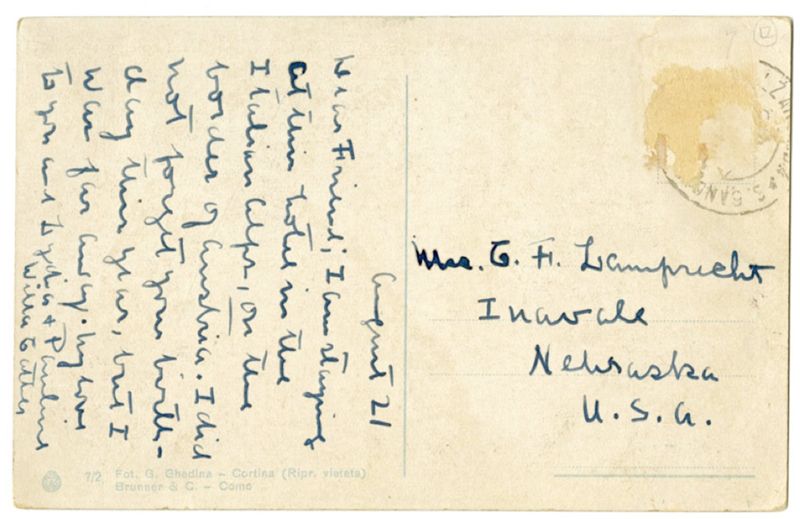 August 21
Dear Friend; I am staying
at this hotel in the
Italian Alps, on the
border of Austria. I did
not forget your birth-
day this year, but I
was far away. My love
to you and Lydia & Pauline
Willa Cather
Mrs. C. F. Lamprecht
Inavale
Nebraska
U.S.A.
7/2 Fot. G. Ghedina – Cortina (Ripr. vietata)
Brunner & C. – Como